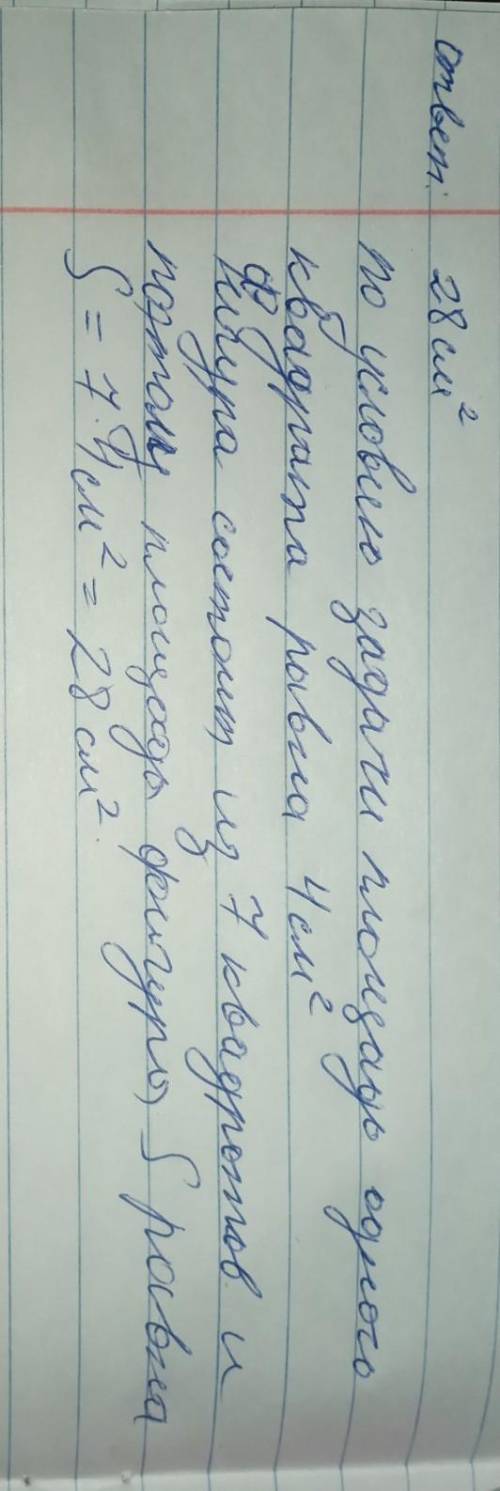 ответ: 28 см²
по условию задачи площадь одного
квадрата равна 4 см²
Фигура состоит из 7 квадратов и
поэтому площадь фигуры S равна
S = 7 · 4 см² = 28 см².